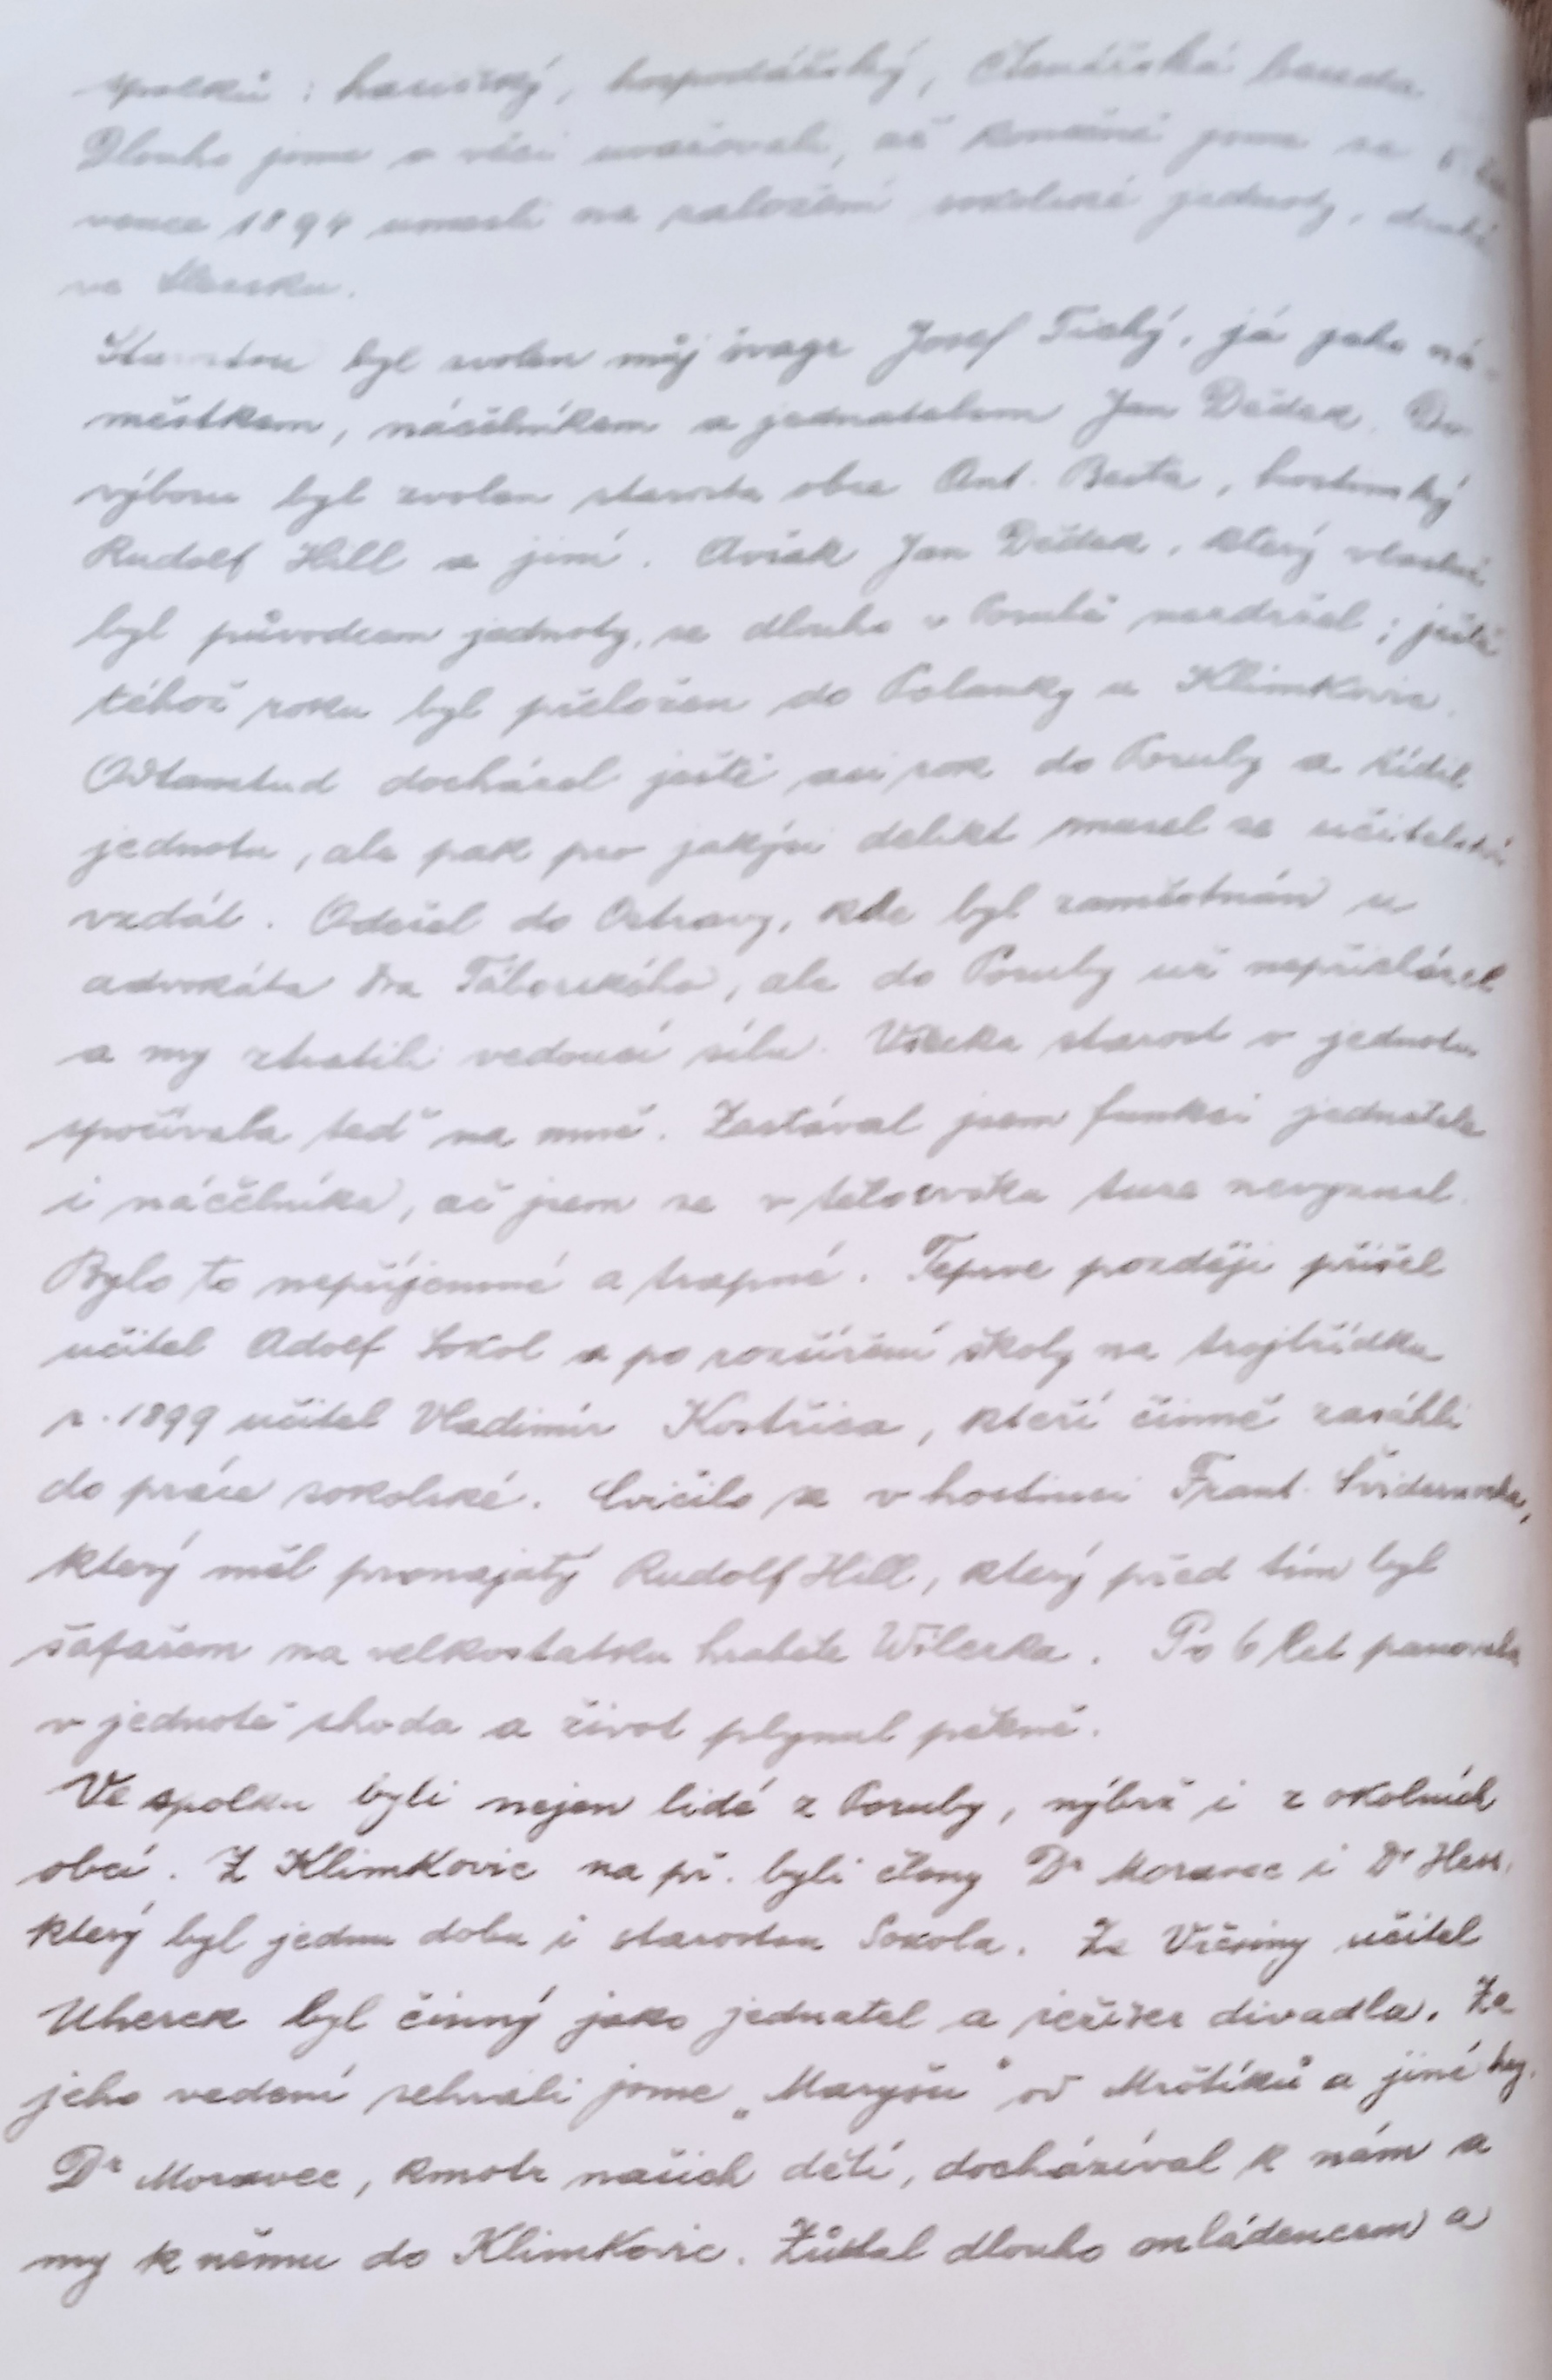 spolků: hasičský, hospodářský, čtenářská beseda
Dlouho jsme o věci uvažovali, až konečně jsme se 6. čer
vence 1894 usnesli na založení sokolské jednoty, druhé
ve Slezsku.
Starostou byl zvolen můj švagr Josef Tichý, já jako ná-
městkem, náčelníkem a jednatelem Jan Dědek. Do
výboru byl zvolen starosta obce Ant. Besta, hostinský
Rudolf Hill a jiní. Avšak Jan Dědek, který vlastně
byl původcem jednoty, se dlouho v Porubě nezdržel; ještě
téhož roku byl přeložen do Polanky u Klimkovic.
Odtamtud docházel ještě asi rok do Poruby a řídil
jednotu, ale pak pro jakýsi delikt musel se učitelství
vzdát. Odešel do Ostravy, kde byl zaměstnán u
advokáta Dra Táborského, ale do Poruby už nepřicházel
a my ztratili vedoucí sílu. Všecka starost o jednotu
spočívala teď na mně. Zastával jsem funkci jednatele
i náčelníka, ač jsem se v tělocviku tuze nevyznal.
Bylo to nepříjemné a trapné. Teprve později přišel
učitel Adolf Sokol a po rozšíření školy na trojtřídku
r. 1899 učitel Vladimír Kostřica, kteří činně zasáhli
do práce sokolské. Cvičilo se v hostinci Frant. Švidernocha,
který měl pronajatý Rudolf Hill, který před tím byl
šafářem na velkostatku hraběte Wilczka. Po 6 let panovala
v jednotě shoda a život plynul pěkně.
Ve spolku byli nejen lidé z Poruby, nýbrž i z okolních
obcí. Z Klimkovic na př. byli členy Dr Moravec i Dr Hess,
který byl jednu dobu i starostou Sokola. Ze Vřesiny učitel
Uherek byl činný jako jednatel a režisér divadla. Za
jeho vedení sehráli jsme „Maryšu" od Mrštíků a jiné hry.
Dr Moravec, kmotr našich dětí, docházíval k nám a
my k němu do Klimkovic. Zůstal dlouho mládencem a